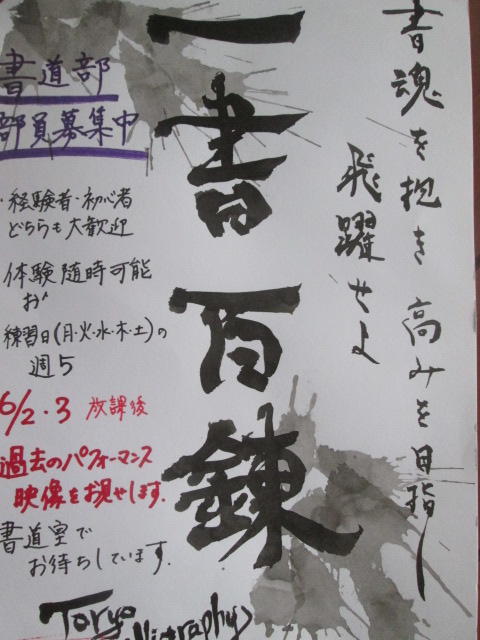 書魂を抱き高みを目指し
飛躍せよ
一書百錬
書道部
部員募集中
・経験者・初心者
どちらも大歓迎
体験随時可能
お
練習日(月・火・水・木・土)の
週5
6/2・3 放課後
過去のパフォーマンス
映像をお見せします。
書道室で
お待ちしています。
Toryo
lligraphy